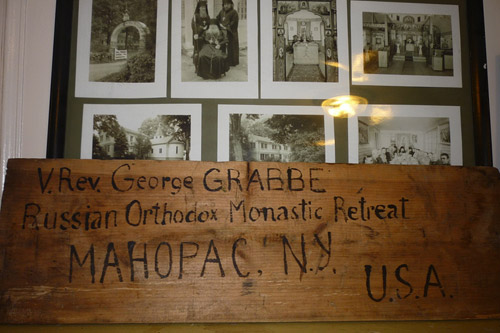 V. Rev. George GRABBE
Russian Orthodox Monastic Retreat
MAHOPAC, N.Y.
U.S.A.